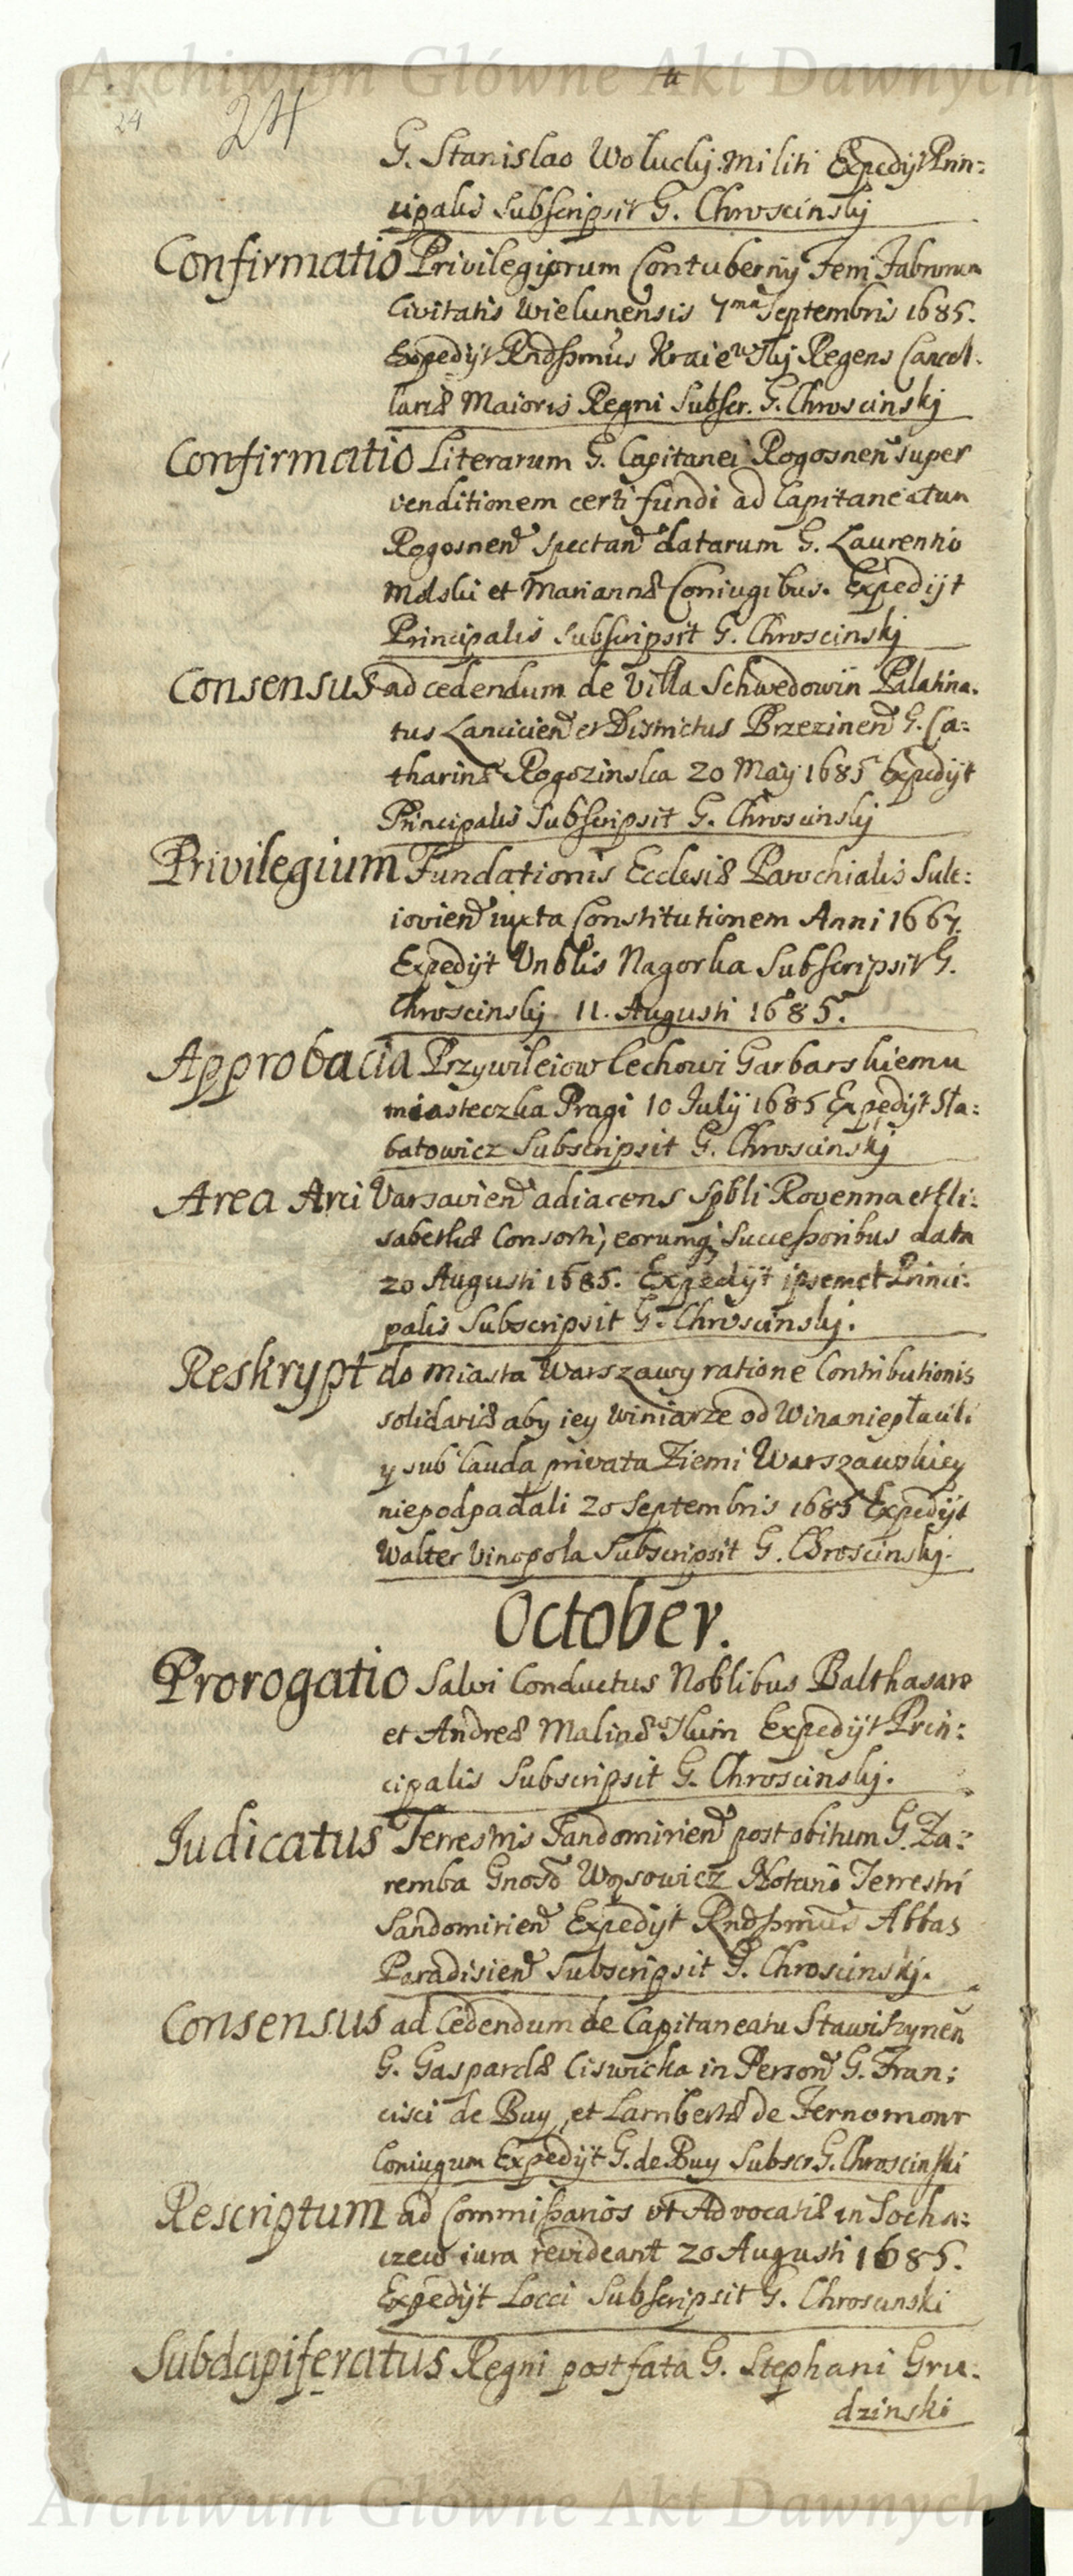 Archiwum Główne Akt Dawnych
24
24
G. Stanislao Wolucky Militi Expedijt Prin:
cipalis Subscripsit G. Chroscinskj
Confirmatio Privilegiorum Contubernij Feni Fabrorum
Civitatis Wielunensis 7ma Septembris 1685.
Expedijt Rndssmus Kraiewskj Regens Cancel:
lariæ Maioris Regni Subscr. G. Chroscinskj
Confirmatio Literarum G. Capitanei Rogosnen super
venditionem certi fundi ad Capitaneatum
Rogosnen spectan datarum G. Laurentio
Molski et Mariannæ Coniugibus. Expedijt
Principalis subscripsit G. Chroscinskj
Consensus ad cedendum de Villa Schwedowin Palatina:
tus Lancicien et Districtus Brzezinen G. Ca:
tharinæ Rogozinska 20 Maij 1685 Expedijt
Principalis Subscripsit G. Chroscinskj
Privilegium Fundationis Ecclesiæ Parochialis Sule:
iovien iuxta Constitutionem Anni 1667.
Expedijt Vnblis Nagorka Subscripsit G.
Chroscinskj 11. Augusti 1685.
Approbacia Przywileiow Cechowi Garbarskiemu
miasteczka Pragi 10 Julij 1685 Expedijt Sła:
batowicz Subscripsit G. Chroscinskj
Area Arci Varsavien adiacens Spbli Rovenna et Eli:
sabethæ Consorti, eorumq successoribus data
20 Augusti 1685. Expedijt ipsemet Princi:
palis Subscripsit G. Chroscinskj.
Reskrypt do Miasta Warszawy ratione Contributionis
solidariæ aby iey winiarze od Wina niepłacili
y sub lauda privata Ziemi Warszawskiey
niepodpadali 20 Septembris 1685 Expedijt
Walter Vinopola Subscripsit G. Chroscinskj.
October.
Prorogatio Salvi Conductus Noblibus Balthasare
et Andreæ Malinæ Expedijt Prin:
cipalis Subscripsit G. Chroscinskj.
Judicatus Terrestris Sandomirien post obitum G. Za:
remba Gnoso Wąsowicz Notario Terrestri
Sandomirien Expedijt Rndssmus Abbas
Paradisien Subscripsit G. Chroscinskj.
Consensus ad Cedendum de Capitaneatu Stawiszynen
G. Gasparæ Ciswicka in Person G. Fran:
cisci de Buy, et Lambertæ de Ternomont
Coniugum Expedijt G. de Buy Subscr G. Chroscinski
Rescriptum ad Commissarios ut Advocatiæ in Socha:
czew iura revideant 20 Augusti 1685.
Expedijt Locci Subscripsit G. Chroscinski
Subdapiferatus Regni post fata G. Stephani Gru:
dzinski
Archiwum Główne Akt Dawnych